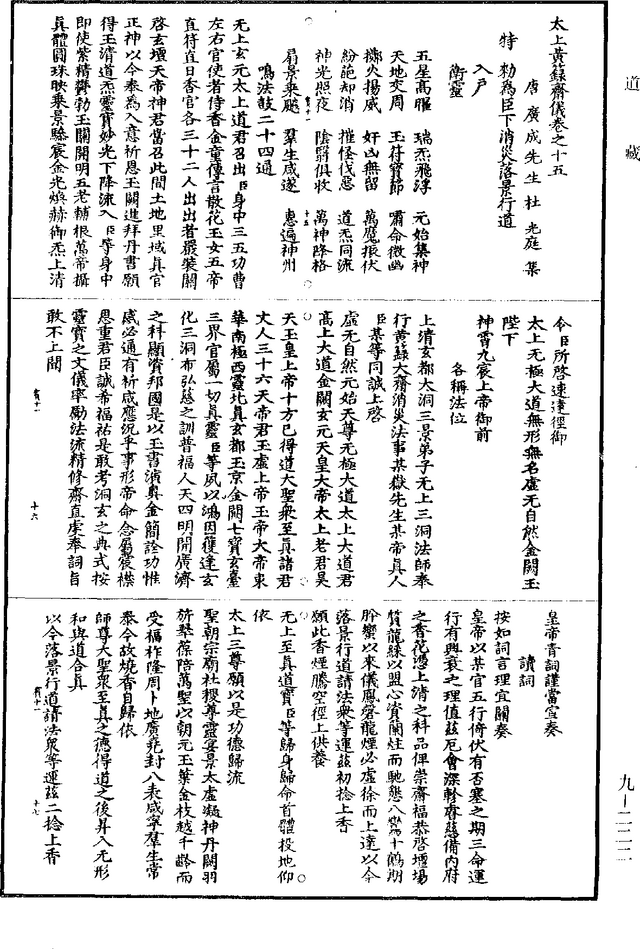 道藏
太上黃籙齋儀卷之十五
唐廣成先生杜光庭集
特勑為臣下消災落景行道
入戶
衛靈
五星高曜　瑞炁飛浮　元始集神
天地交周　玉符寶節　嘯命徵幽
擲火揚威　奸凶無留　萬魔振伏
紛葩却消　摧怪伐惡　道炁同流
神光照夜　陰翳俱收　萬神降格
扇景乘飈　羣生咸遂　惠遍神州
鳴法鼓二十四通
无上玄元太上道君召出臣身中三五功曹
左右官使者侍香金童傳言散花玉女五帝
直符直日香官各三十二人出出者嚴裝關
啓玄壇天帝神君當召此間土地里域真官
正神以今奉為入意祈恩玉闕進拜丹書願
得玉清道炁靈寶妙光下降流入臣等身中
即使紫精鬱勃玉關開明五老輔根萬帝攝
真體圓珠映乘景驂宸金光煥赫御炁上清
今臣所啓速達徑御
太上无極大道無形無名虛无自然金闕玉
陛下
神霄九宸上帝御前
各稱法位
上清玄都大洞三景弟子无上三洞法師奉
行黃籙大齋消災法事某嶽先生某帝真人
臣某等同誠上啓
虛无自然元始天尊无極大道太上大道君
高上大道金闕玄元天皇大帝太上老君昊
天玉皇上帝十方已得道大聖衆至真諸君
丈人三十六天帝君玉虛上帝玉帝大帝東
華南極西靈北真玄都玉京金闕七寶玄臺
三界官屬一切真靈臣等夙以鴻因獲達玄
化三洞布弘慈之訓普福人天四明開廣濟
之科顯資邦國是以玉書演奥金簡詮功惟
感必通有祈咸應況乎事形帝命念屬宸襟
恩重君臣誠希福祐是敢考洞玄之典式按
靈寶之文儀率勵法流精修齋直虔奉詞旨
敢不上聞
十六
皇帝青詞謹當宣奏
讀詞
按如詞言理宜關奏
皇帝以某官五行倚伏有否塞之期三命運
行有興衰之理值兹厄會深軫睿慈備內府
之香花憑上清之科品俾崇齋福恭啓壇場
質龍綵以盟心資蘭炷而馳懇八鸞十鶴期
肸蠁以來儀鳳磬龍煙必虛徐而上達以今
落景行道請法衆等運兹初捻上香
願此香煙騰空徑上供養
无上至真道寶臣等歸身歸命首體投地仰
依
太上三尊願以是功德歸流
聖朝宗廟社稷尊靈宴景太虛凝神丹闕羽
旂翠葆陪萬聖以朝元玉葉金枝越千齡而
受福祚隆周卜地廣堯封八表咸寧羣生常
泰今故燒香自歸依
師尊大聖衆至真之德得道之後昇入无形
和與道合真
以今落景行道請法衆等運兹二捻上香
十七
九－二二二